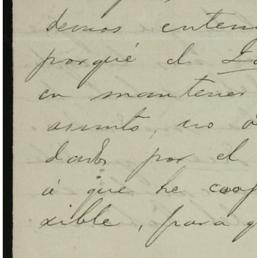 demos enten
porqué el
en mantener
asunto, no
dado por el
á que he coop
xible, para q